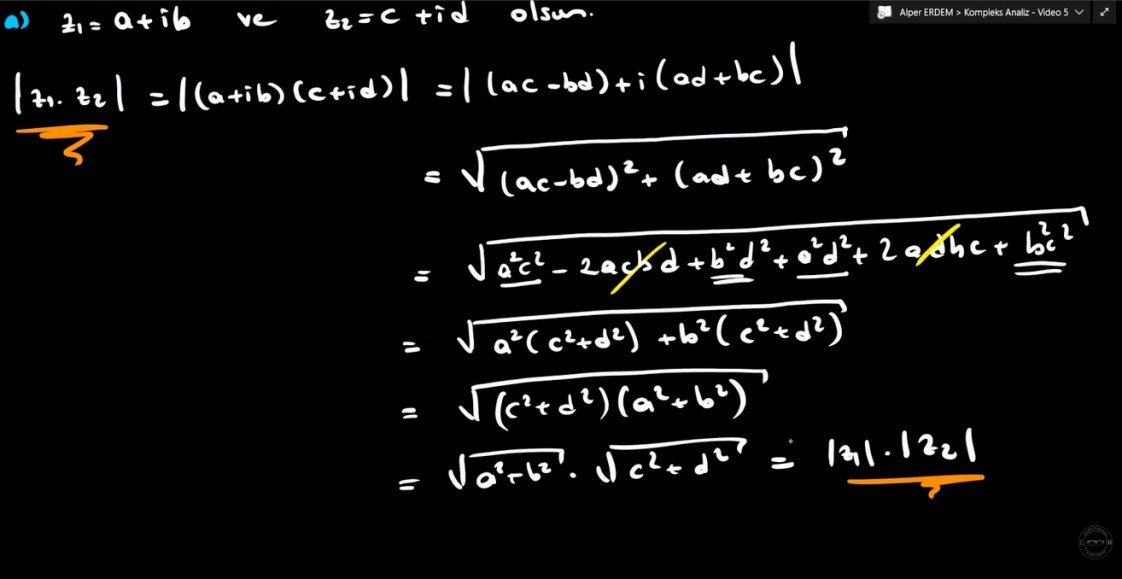 Alper ERDEM > Kompleks Analiz - Video 5
a) z₁ = a+ib ve z₂ = c+id olsun.
|z₁.z₂| = |(a+ib)(c+id)| = |(ac-bd)+i(ad+bc)|
= √((ac-bd)²+(ad+bc)²)
= √(a²c² - 2acbd + b²d² + a²d² + 2adbc + b²c²)
= √(a²(c²+d²)+b²(c²+d²))
= √((c²+d²)(a²+b²))
= √(a²+b²) . √(c²+d²) = |z₁|.|z₂|